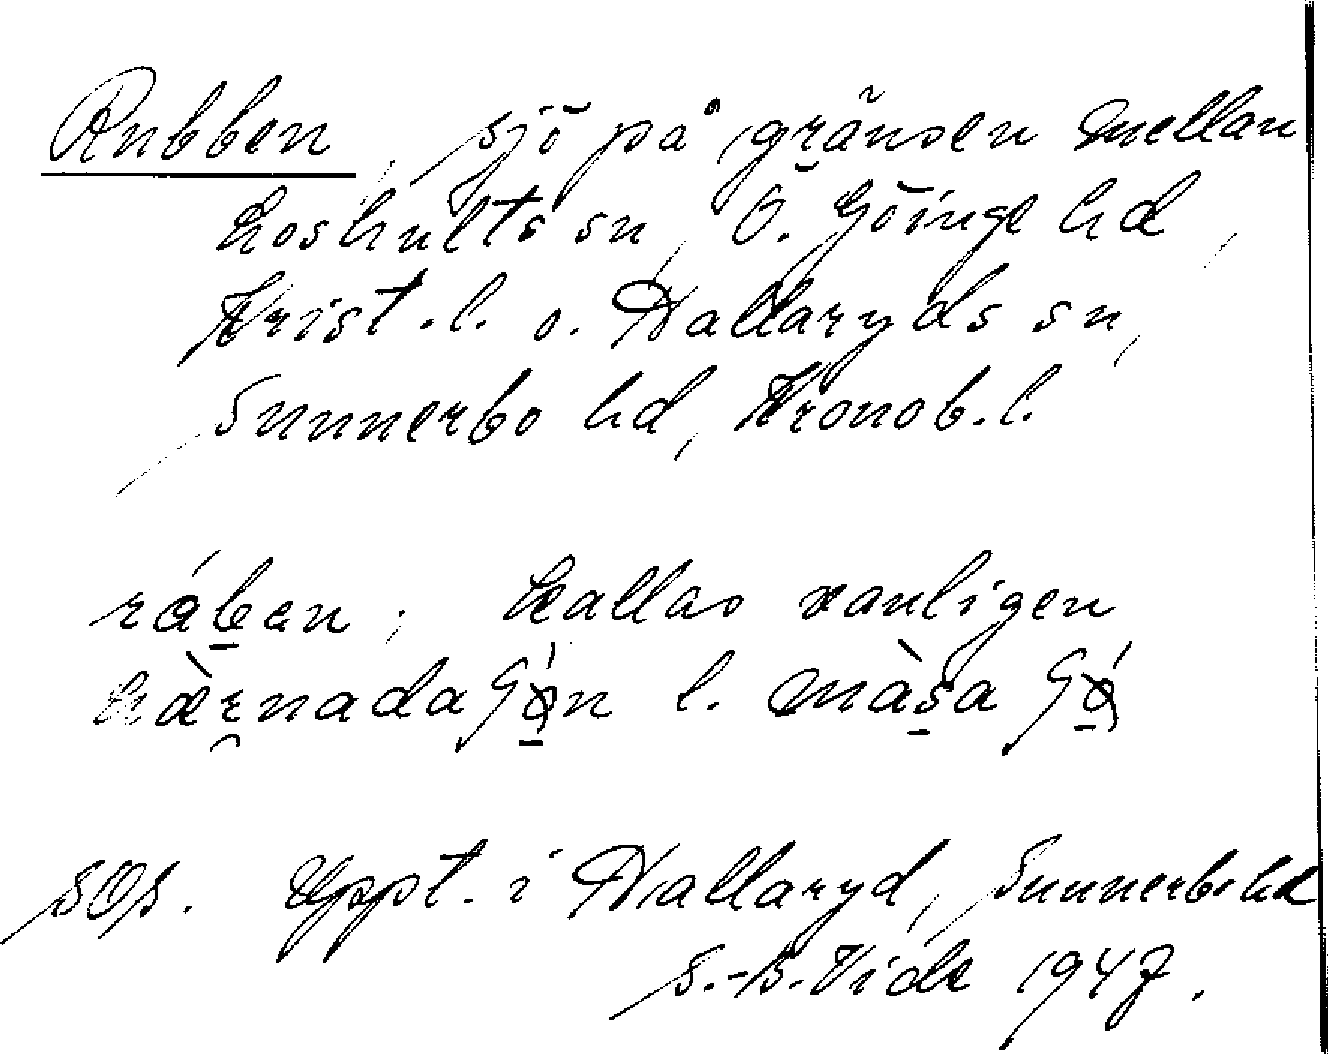 Rubben, sjö på gränsen mellan
Loshults sn, Ö. Göinge hd,
Krist. l. o. Hallaryds sn,
Sunnerbo hd, Kronob. l.
kallas vanligen
l.
SOS. Uppt. i Hallaryd, Sunnerbo hd
S.-B. Vide 1947.